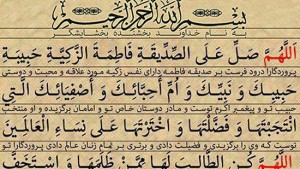 بسم الله الرحمن الرحیم
به نام خداوند بخشنده بخشایشگر
اللَّهُمَّ صَلِّ عَلَى الصِّدِّيقَةِ فَاطِمَةَ الزَّكِيَّةِ حَبِيبَةِ
پروردگارا درود فرست بر صدیقه فاطمه دارای نفس زکیه مورد علاقه و محبت و دوستی
حَبِيبِكَ وَ نَبِيِّكَ وَ أُمِّ أَحِبَّائِكَ وَ أَصْفِيَائِكَ الَّتِي
حبیب تو و پیغمبر اکرم توست و مادر دوستان خاص تو و امامان برگزیده و او
انْتَجَبْتَهَا وَ فَضَّلْتَهَا وَ اخْتَرْتَهَا عَلَى نِسَاءِ الْعَالَمِينَ
توست که وی را برگزیدی و فضیلت دادی و برتری بر تمام زنان عالم دادی پروردگارا تو
اللَّهُمَّ كُنِ الطَّالِبَ لَهَا مِمَّنْ ظَلَمَهَا وَ اسْتَخَفَّ